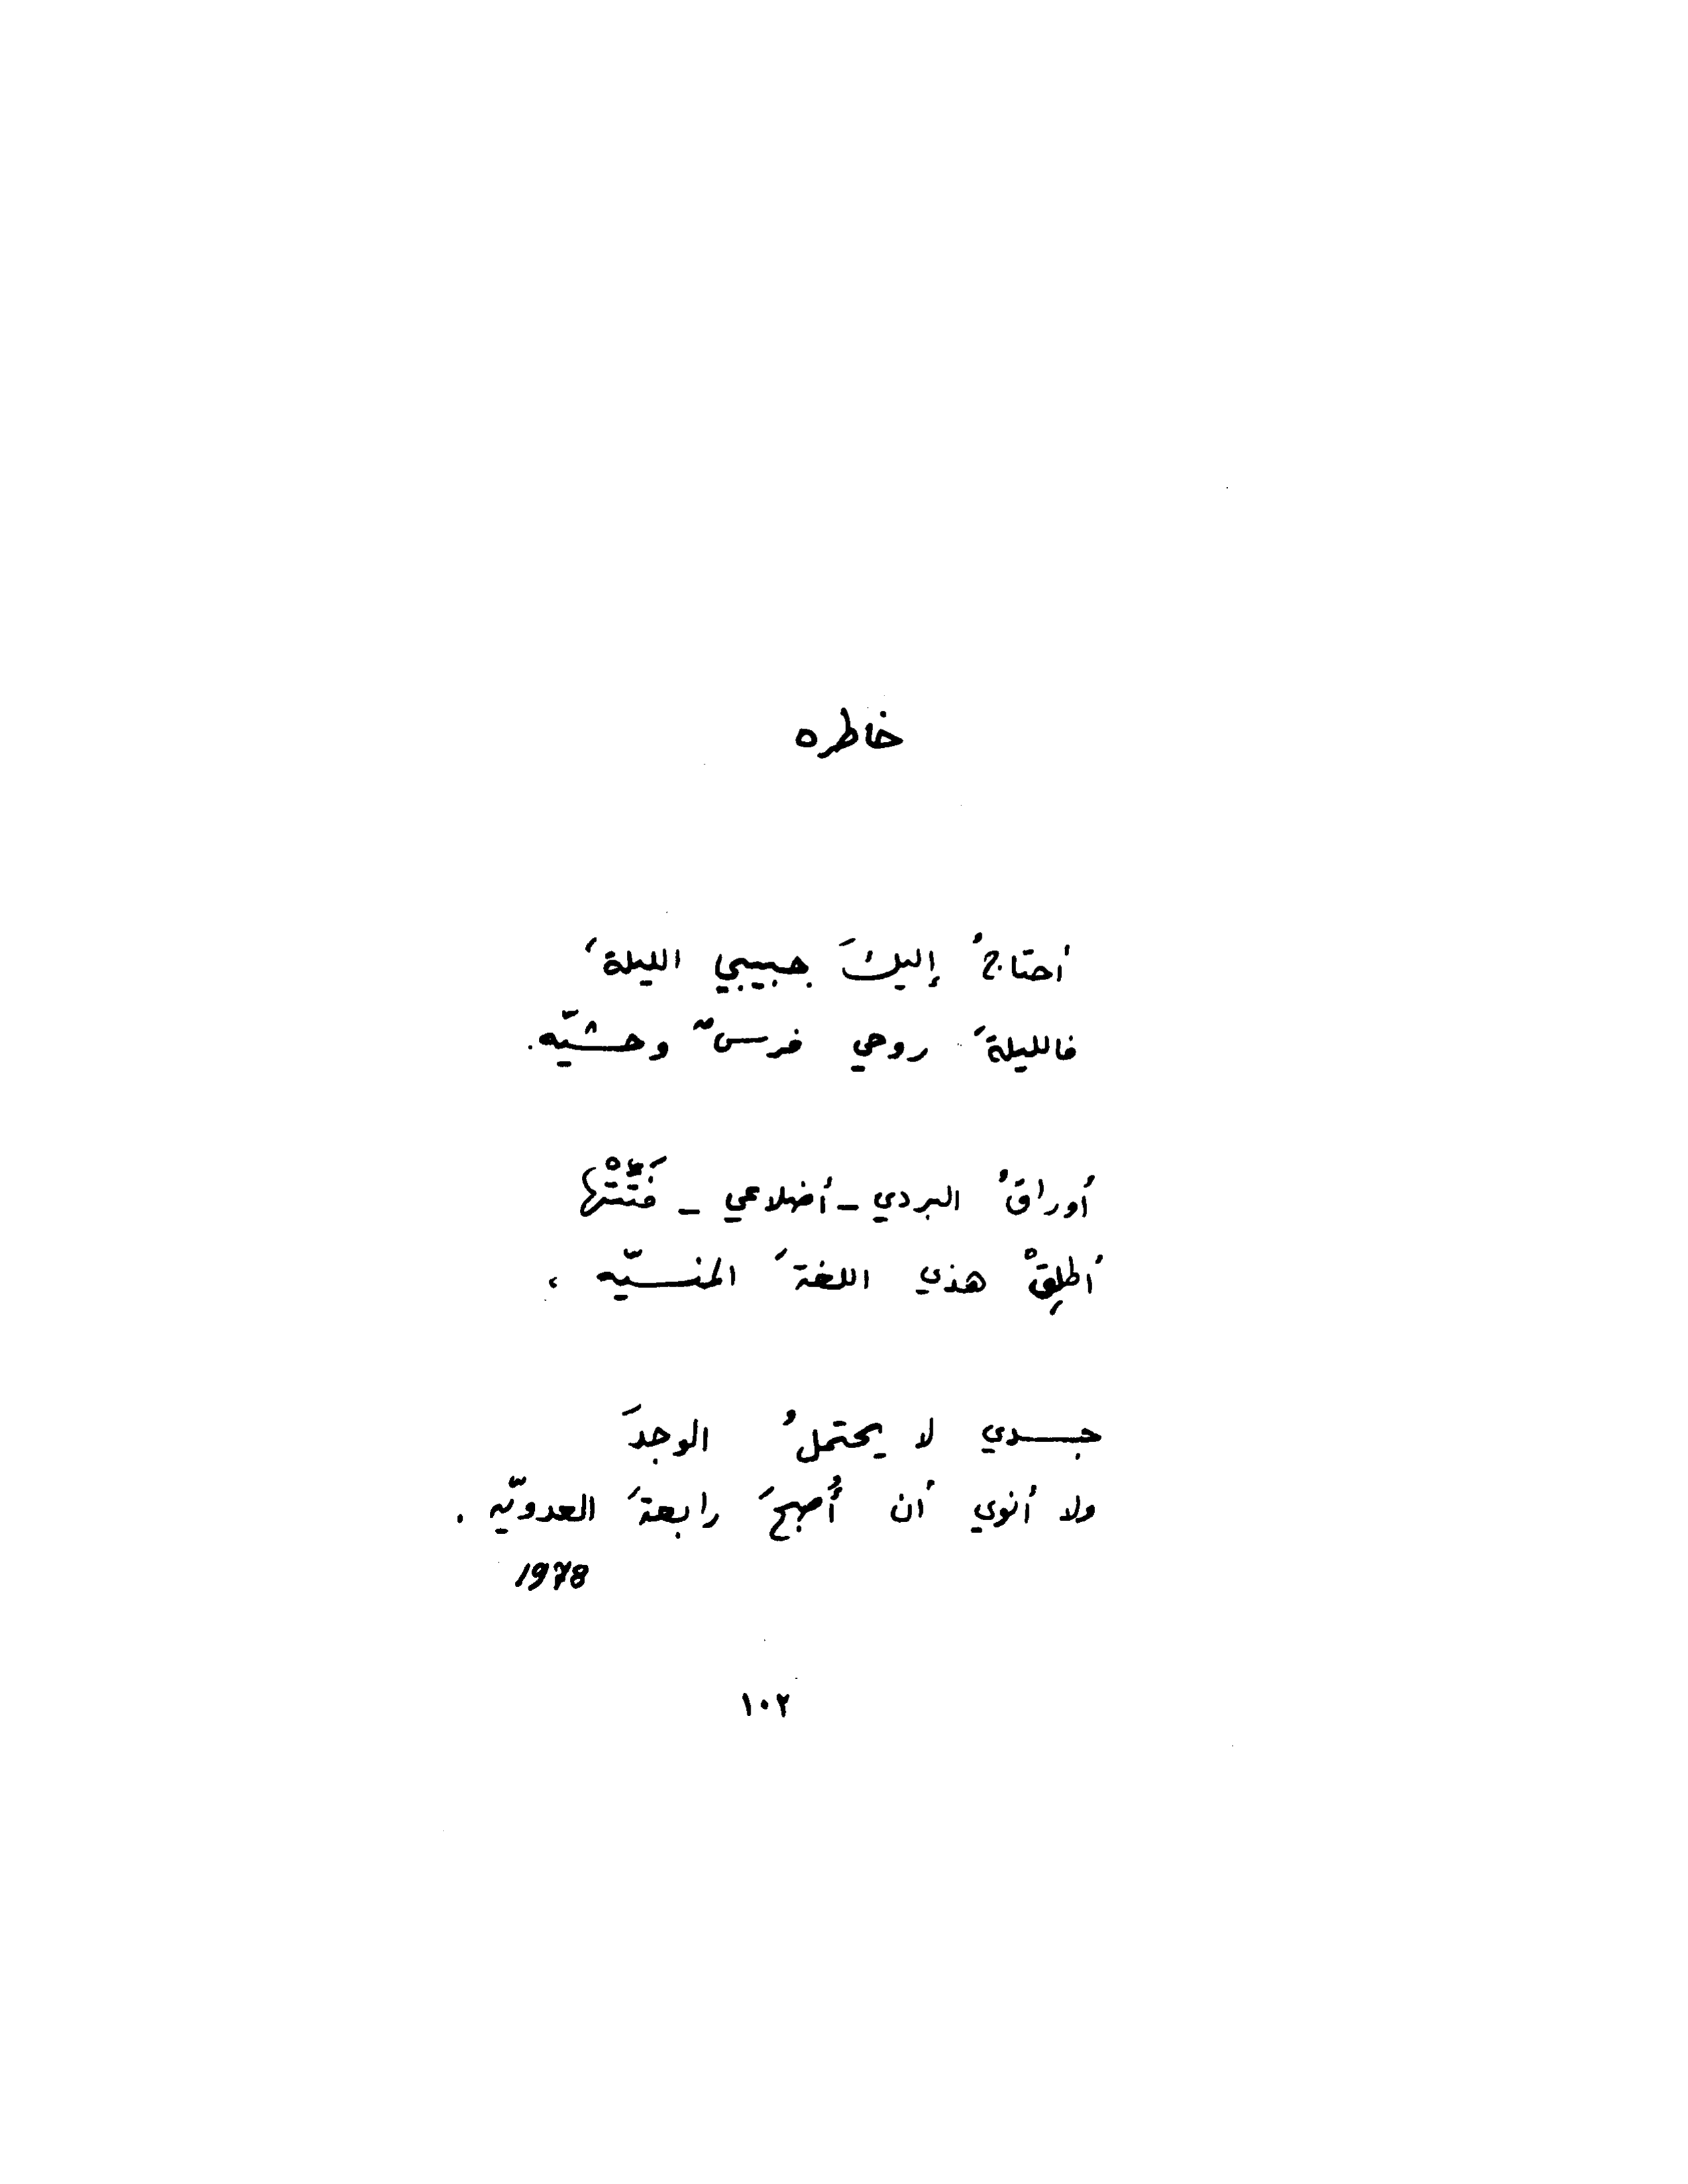 خاطره
أحتاجُ إليكَ حبيبي الليلة،
فالليلةَ روحي فرسٌ وحشيّه.
أوراقُ البردي - أضلاعي - فَتِّتْها
أطلِقْ هذي اللغةَ المنسيّه،
جسدي لا يحتملُ الوجدَ
ولا أنوي أن أُصبحَ رابعةَ العدويّه.
1978
١٠٢